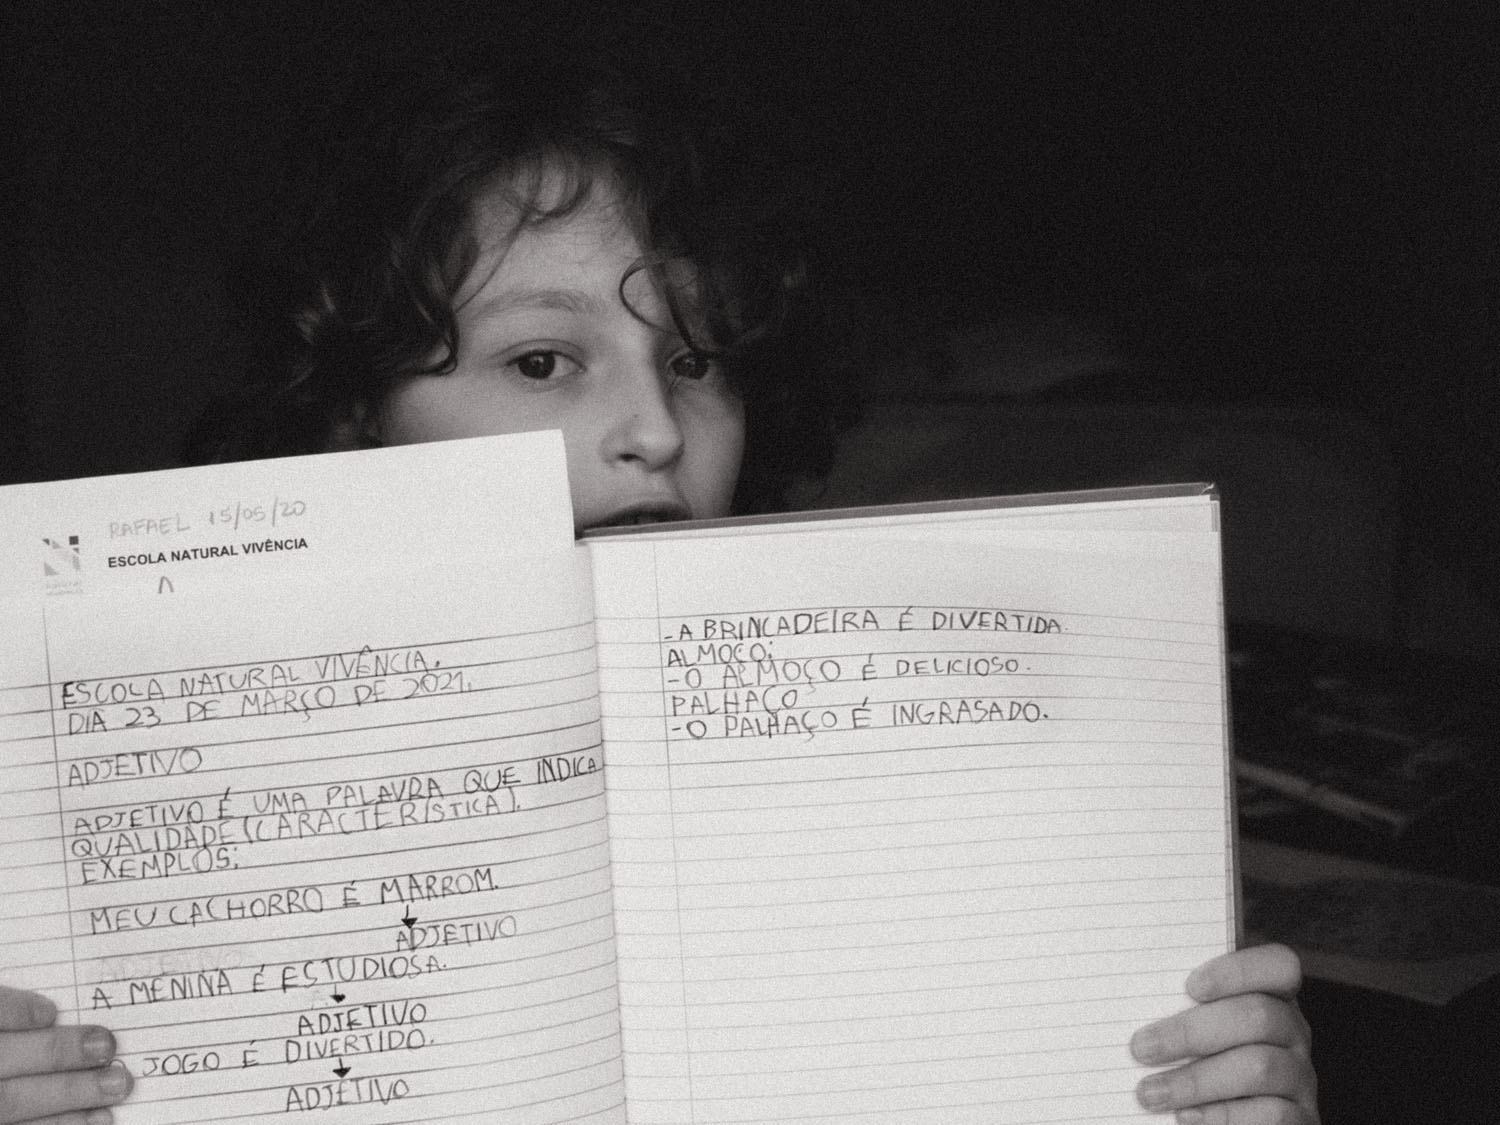 RAFAEL 15/05/20
ESCOLA NATURAL VIVÊNCIA
ESCOLA NATURAL VIVÊNCIA.
DIA 23 DE MARÇO DE 2021.
ADJETIVO
ADJETIVO É UMA PALAVRA QUE INDICA
QUALIDADE (CARACTERÍSTICA).
EXEMPLOS:
MEU CACHORRO É MARROM.
ADJETIVO
A MENINA É ESTUDIOSA.
ADJETIVO
JOGO É DIVERTIDO.
ADJETIVO
-A BRINCADEIRA É DIVERTIDA.
ALMOÇO:
-O ALMOÇO É DELICIOSO.
PALHAÇO
-O PALHAÇO É INGRASADO.